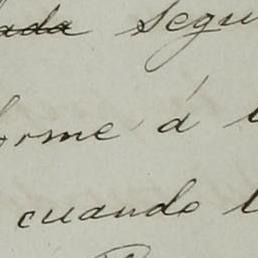 ada segu
forme á l
cuando l